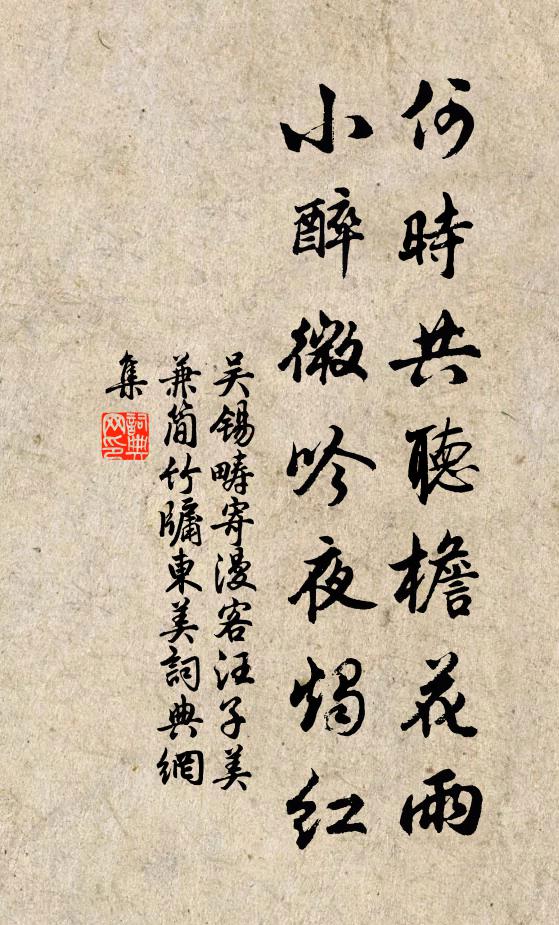 何時共聽檐花雨
小醉微吟夜燭红
吴錫疇寄漫客汪子美
兼简竹牖東美詞典網
集
詞典网印